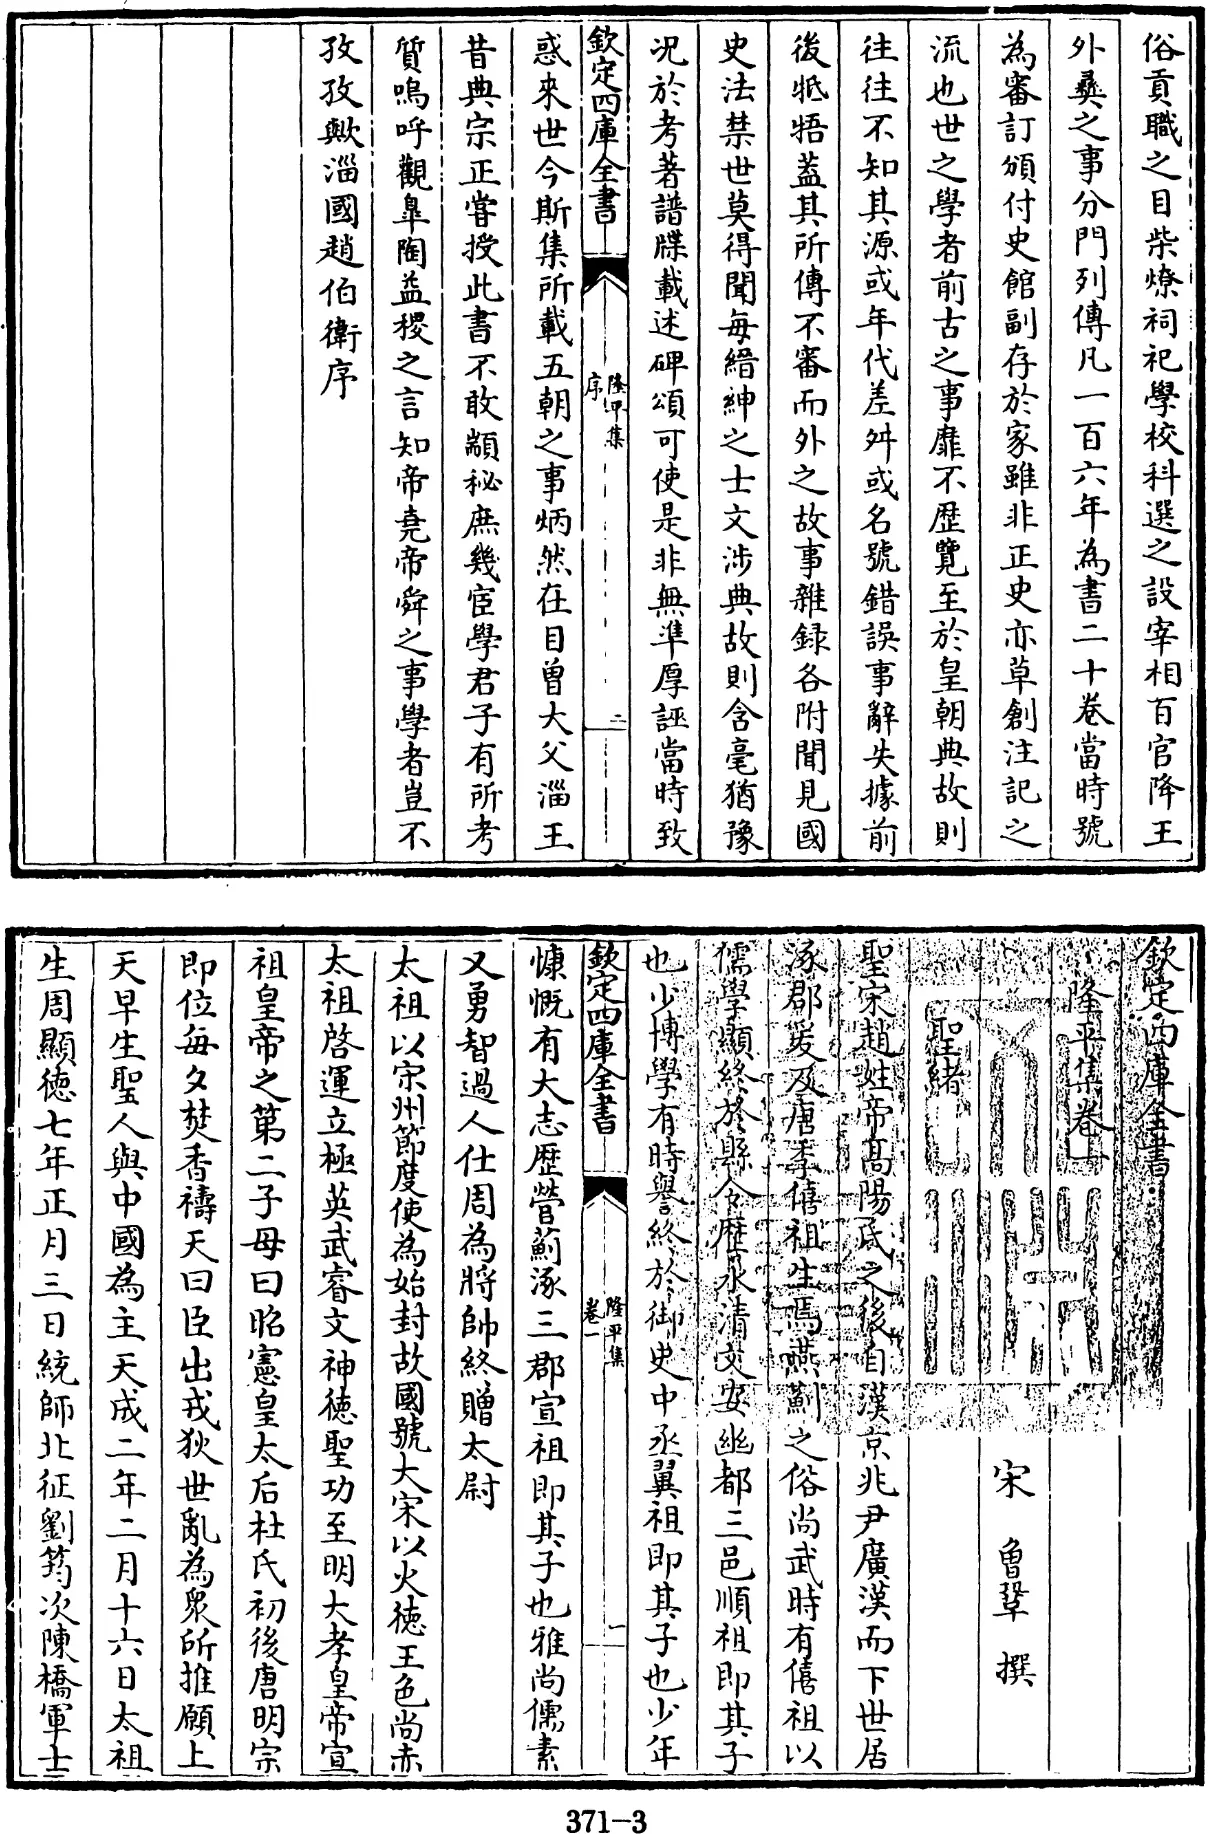 俗貢職之目柴燎祠祀學校科選之設宰相百官降王
外彞之事分門列傳凡一百六年為書二十卷當時號
為審訂頒付史館副存於家雖非正史亦草創注記之
流也世之學者前古之事靡不歴覽至於皇朝典故則
往往不知其源或年代差舛或名號錯誤事辭失據前
後牴牾蓋其所傳不審而外之故事雜録各附聞見國
史法禁世莫得聞每縉紳之士文涉典故則含毫猶豫
况於考著譜牒載述碑頌可使是非無準厚誣當時致
欽定四庫全書
隆平集
序
二
惑來世今斯集所載五朝之事炳然在目曾大父淄王
昔典宗正甞授此書不敢顓秘庶幾宦學君子有所考
質嗚呼觀皐陶益稷之言知帝堯帝舜之事學者豈不
孜孜歟淄國趙伯衛序
欽定四庫全書
隆平集卷一
宋 曾鞏 撰
聖緒
聖宋趙姓帝髙陽氏之後自漢京兆尹廣漢而下世居
涿郡爰及唐季僖祖生焉燕薊之俗尚武時有僖祖以
儒學顯終於縣令歴永清文安幽都三邑順祖即其子
也少博學有時譽終於御史中丞翼祖即其子也少年
欽定四庫全書
隆平集
卷一
一
慷慨有大志歴營薊涿三郡宣祖即其子也雅尚儒素
又勇智過人仕周為將帥終贈太尉
太祖以宋州節度使為始封故國號大宋以火徳王色尚赤
太祖啓運立極英武睿文神徳聖功至明大孝皇帝宣
祖皇帝之第二子母曰昭憲皇太后杜氏初後唐明宗
即位每夕焚香禱天曰臣出戎狄世亂為衆所推願上
天早生聖人與中國為主天成二年二月十六日太祖
生周顯徳七年正月三日統師北征劉筠次陳橋軍士
371-3